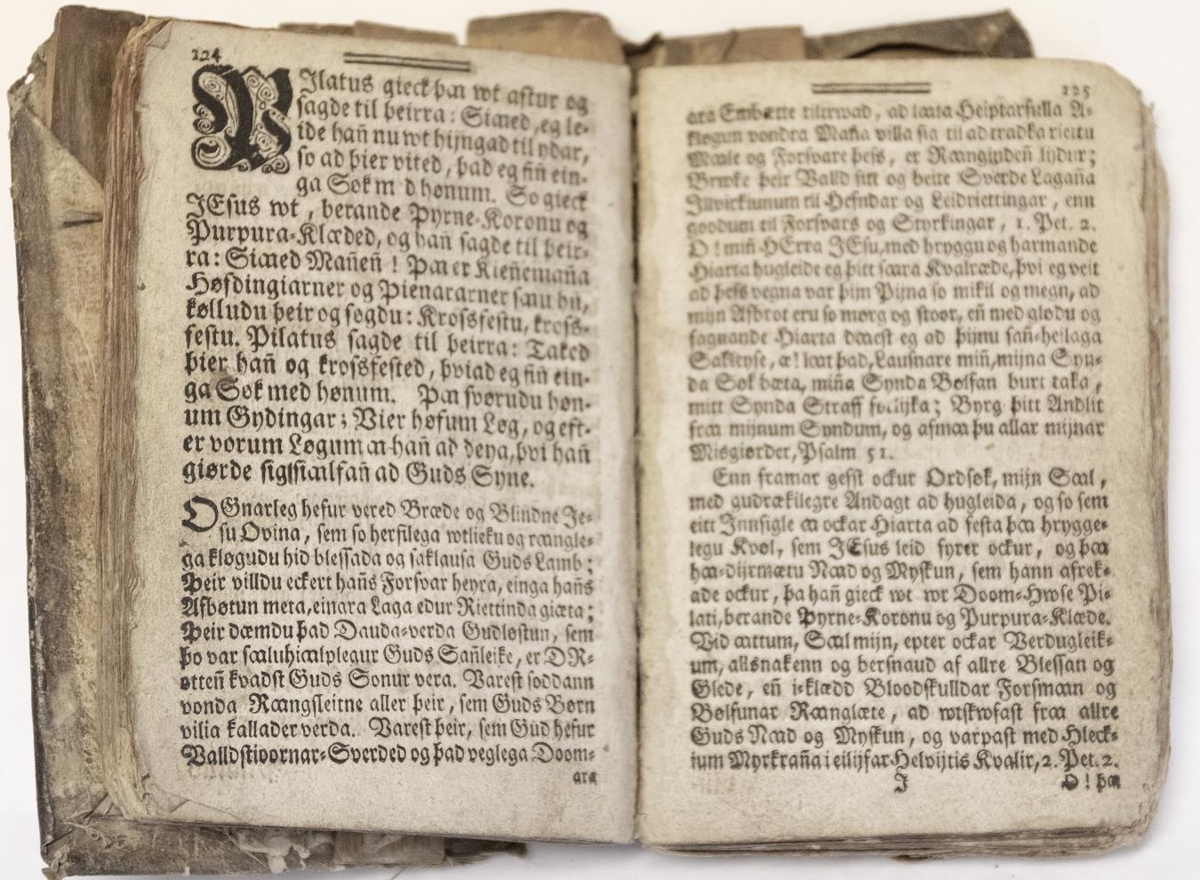 124
PIlatus gieck þa͛ wt aftur og
sagde til þeirra: Siáed, eg le-
ide hañ nu wt hijngad til ydar,
so ad þier vited, þad eg fiñ ein-
ga Søk m d hønum. So gieck
JEsus wt, berande Þyrne-Koronu og
Purpura-Klæded, og hañ sagde til þeir-
ra: Siáed Mañeñ! Þá er Kieñemaña
Høfdingiarner og Þienararner sáu hñ,
kølludu þeir og søgdu: Krossfestu, kross-
festu. Pilatus sagde til þeirra: Taked
þier hañ og krossfested, þviad eg fiñ ein-
ga Søk med hønum. Þá svørudu høn-
um Gydingar; Vier høfum Løg, og eft-
er vorum Løgum á hañ ad deya, þvi hañ
giørde sig siálfañ ad Guds Syne.
OGnarleg hefur vered Bræde og Blindne Je-
su Ovina, sem so herfilega wtlieku og rángle-
ga kløgudu hid blessada og saklausa Guds Lamb;
Þeir villdu eckert hañs Forsvar heyra, einga hañs
Afbøtun meta, einara Laga edur Riettinda giæta;
Þeir dæmdu það Dauda-verda Gudløstun, sem
þo var sáluhiálplegur Guds Sañleike, er DR-
otteñ kvadst Guds Sonur vera. Varest soddann
vonda Rángsleitne aller þeir, sem Guds Børn
vilia kallader verda. Varest þeir, sem Gud hefur
Valldstioornar-Sverded og þad veglega Doom-
ara
125
ara Embætte tiltrwad, ad láta Heiptarfulla A-
kløgun vondra Maña villa sia til ad tradka riettu
Mále og Forsvare þess, er Rángindeñ lijdur;
Brwke þeir Valld sitt og beite Sverde Lagaña
Jllvirkiunum til Hefndar og Leidriettingar, enn
goodum til Forsvars og Styrkingar, 1. Pet. 2.
O! miñ HErra JEsu, med hryggu og harmande
Hiarta hugleide eg þitt sára Kvalræde, þvi eg veit
ad þess vegna var þijn Pijna so mikil og megn, ad
mijn Afbrot eru so mørg og stoor, eñ med glødu og
fagnande Hiarta dáest eg ad þijnu sañ-heilaga
Sakleyse, æ! lát þad, Lausnare miñ, mijna Syn-
da Søk bæta, miña Synda Bølfan burt taka,
mitt Synda Straff forlijka; Byrg þitt Andlit
frá mijnum Syndum, og afmá þu allar mijnar
Misgiørder, Psalm 51.
Enn framar gefst ockur Ordsøk, mijn Sál,
med gudrækilegre Andagt ad hugleida, og so sem
eitt Innsigle á ockar Hiarta ad festa þá hrygge-
legu Kvøl, sem JEsus leid fyrer ockur, og þá
há-dijrmætu Nád og Myskun, sem hann afrek-
ade ockur, þa hañ gieck wt wr Doom-Hwse Pi-
lati, berande Þyrne-Koronu og Purpura-Klæde.
Vid áttum, Sál mijn, epter ockar Verdugleik-
um, allsnakenn og bersnaud af allre Blessan og
Glede, eñ i-klædd Bloodskulldar Forsmán og
Bølfunar Ránglæte, ad wtskwfast frá allre
Guds Nád og Myskun, og varpast med Hleck-
ium Myrkraña i eilijfar Helvijtis Kvalir, 2. Pet. 2.
J
O! þá